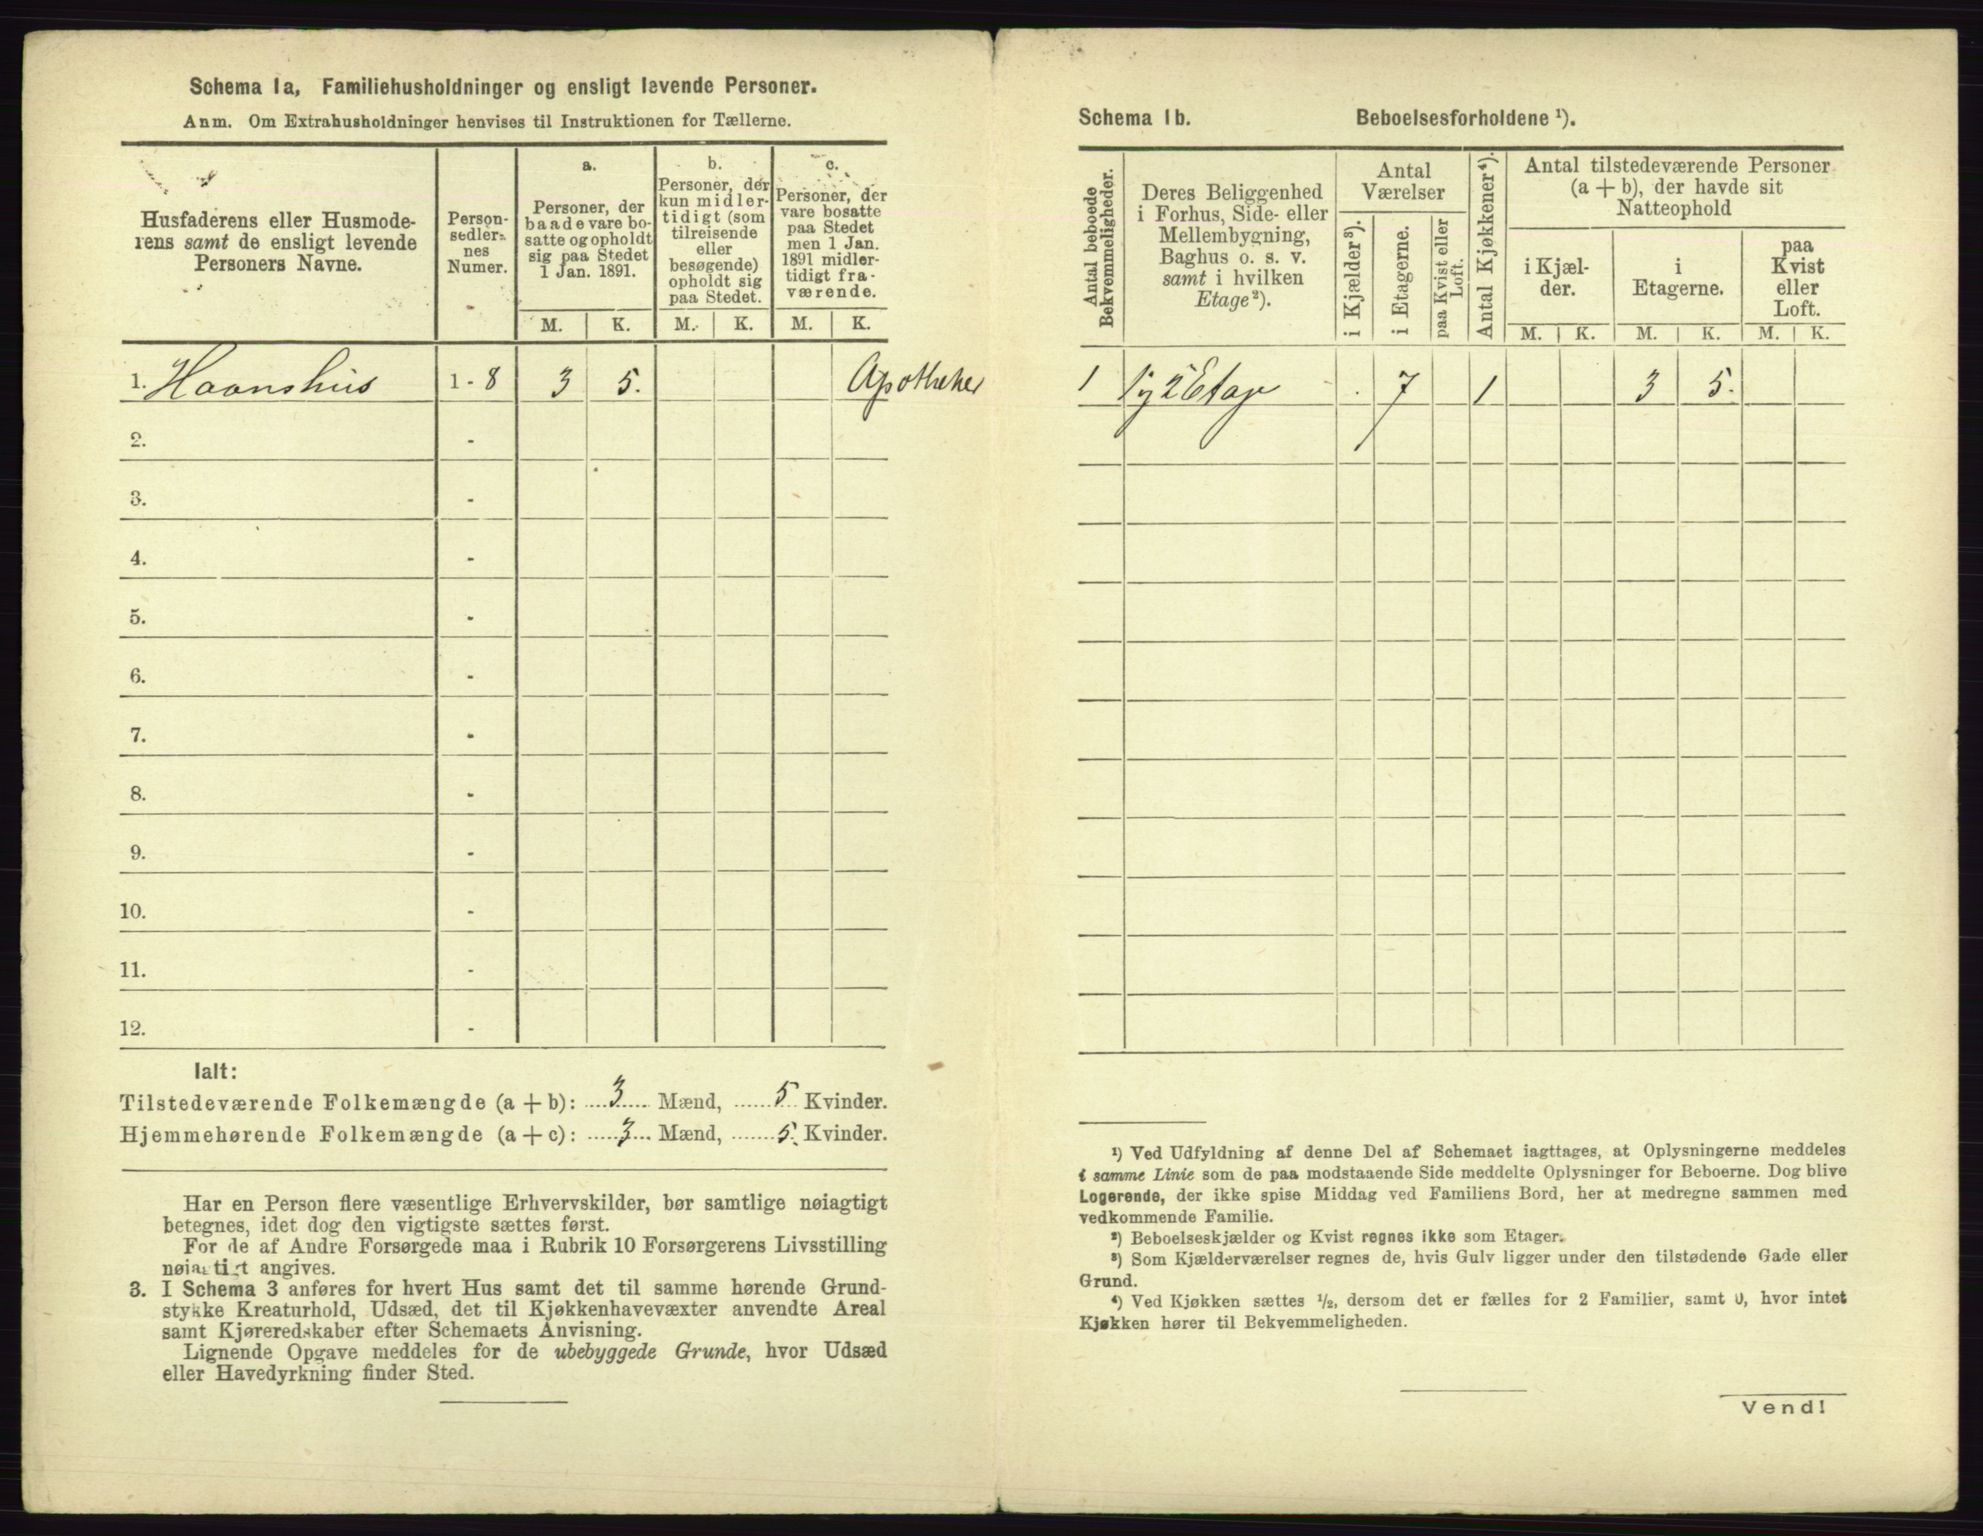 Schema 1a, Familiehusholdninger og ensligt levende Personer.
Anm. Om Extrahusholdninger henvises til Instruktionen for Tællerne.
Husfaderens eller Husmode-
rens samt de ensligt levende
Personers Navne.
Person-
sedler-
nes
Numer.
a.
Personer, der
baade vare bo-
satte og opholdt
sig paa Stedet
1 Jan. 1891.
b.
Personer, der
kun midler-
tidigt (som
tilreisende
eller
besøgende)
opholdt sig
paa Stedet.
c.
Personer, der
vare bosatte
paa Stedet
men 1 Jan.
1891 midler-
tidigt fra-
værende.
M. K. M. K. M. K.
1. Haanshus 1 - 8 3 5. Apotheker
2. -
3. -
4. -
5. -
6. -
7. -
8. -
9. -
10. -
11. -
12. -
Ialt:
Tilstedeværende Folkemængde (a + b): 3 Mænd, 5 Kvinder.
Hjemmehørende Folkemængde (a + c): 3 Mænd, 5. Kvinder.
Har en Person flere væsentlige Erhvervskilder, bør samtlige nøiagtigt
betegnes, idet dog den vigtigste sættes først.
For de af Andre Forsørgede maa i Rubrik 10 Forsørgerens Livsstilling
nøiagtigt angives.
3. I Schema 3 anføres for hvert Hus samt det til samme hørende Grund-
stykke Kreaturhold, Udsæd, det til Kjøkkenhavevæxter anvendte Areal
samt Kjøreredskaber efter Schemaets Anvisning.
Lignende Opgave meddeles for de ubebyggede Grunde, hvor Udsæd
eller Havedyrkning finder Sted.
Schema 1b. Beboelsesforholdene ¹).
Antal beboede
Bekvemmeligheder.
Deres Beliggenhed
i Forhus, Side- eller
Mellembygning,
Baghus o. s. v.
samt i hvilken
Etage²).
Antal
Værelser
i Kjælder³).
i Etagerne.
paa Kvist eller
Loft.
Antal Kjøkkener⁴).
Antal tilstedeværende Personer
(a + b), der havde sit
Natteophold
i Kjæl-
der.
i
Etagerne.
paa
Kvist
eller
Loft.
M. K. M. K. M. K.
1 1 og 2 Etage . 7 1 3 5.
¹) Ved Udfyldning af denne Del af Schemaet iagttages, at Oplysningerne meddeles
i samme Linie som de paa modstaaende Side meddelte Oplysninger for Beboerne. Dog blive
Logerende, der ikke spise Middag ved Familiens Bord, her at medregne sammen med
vedkommende Familie.
²) Beboelseskjælder og Kvist regnes ikke som Etager.
³) Som Kjælderværelser regnes de, hvis Gulv ligger under den tilstødende Gade eller
Grund.
⁴) Ved Kjøkken sættes ½, dersom det er fælles for 2 Familier, samt 0, hvor intet
Kjøkken hører til Bekvemmeligheden.
Vend!